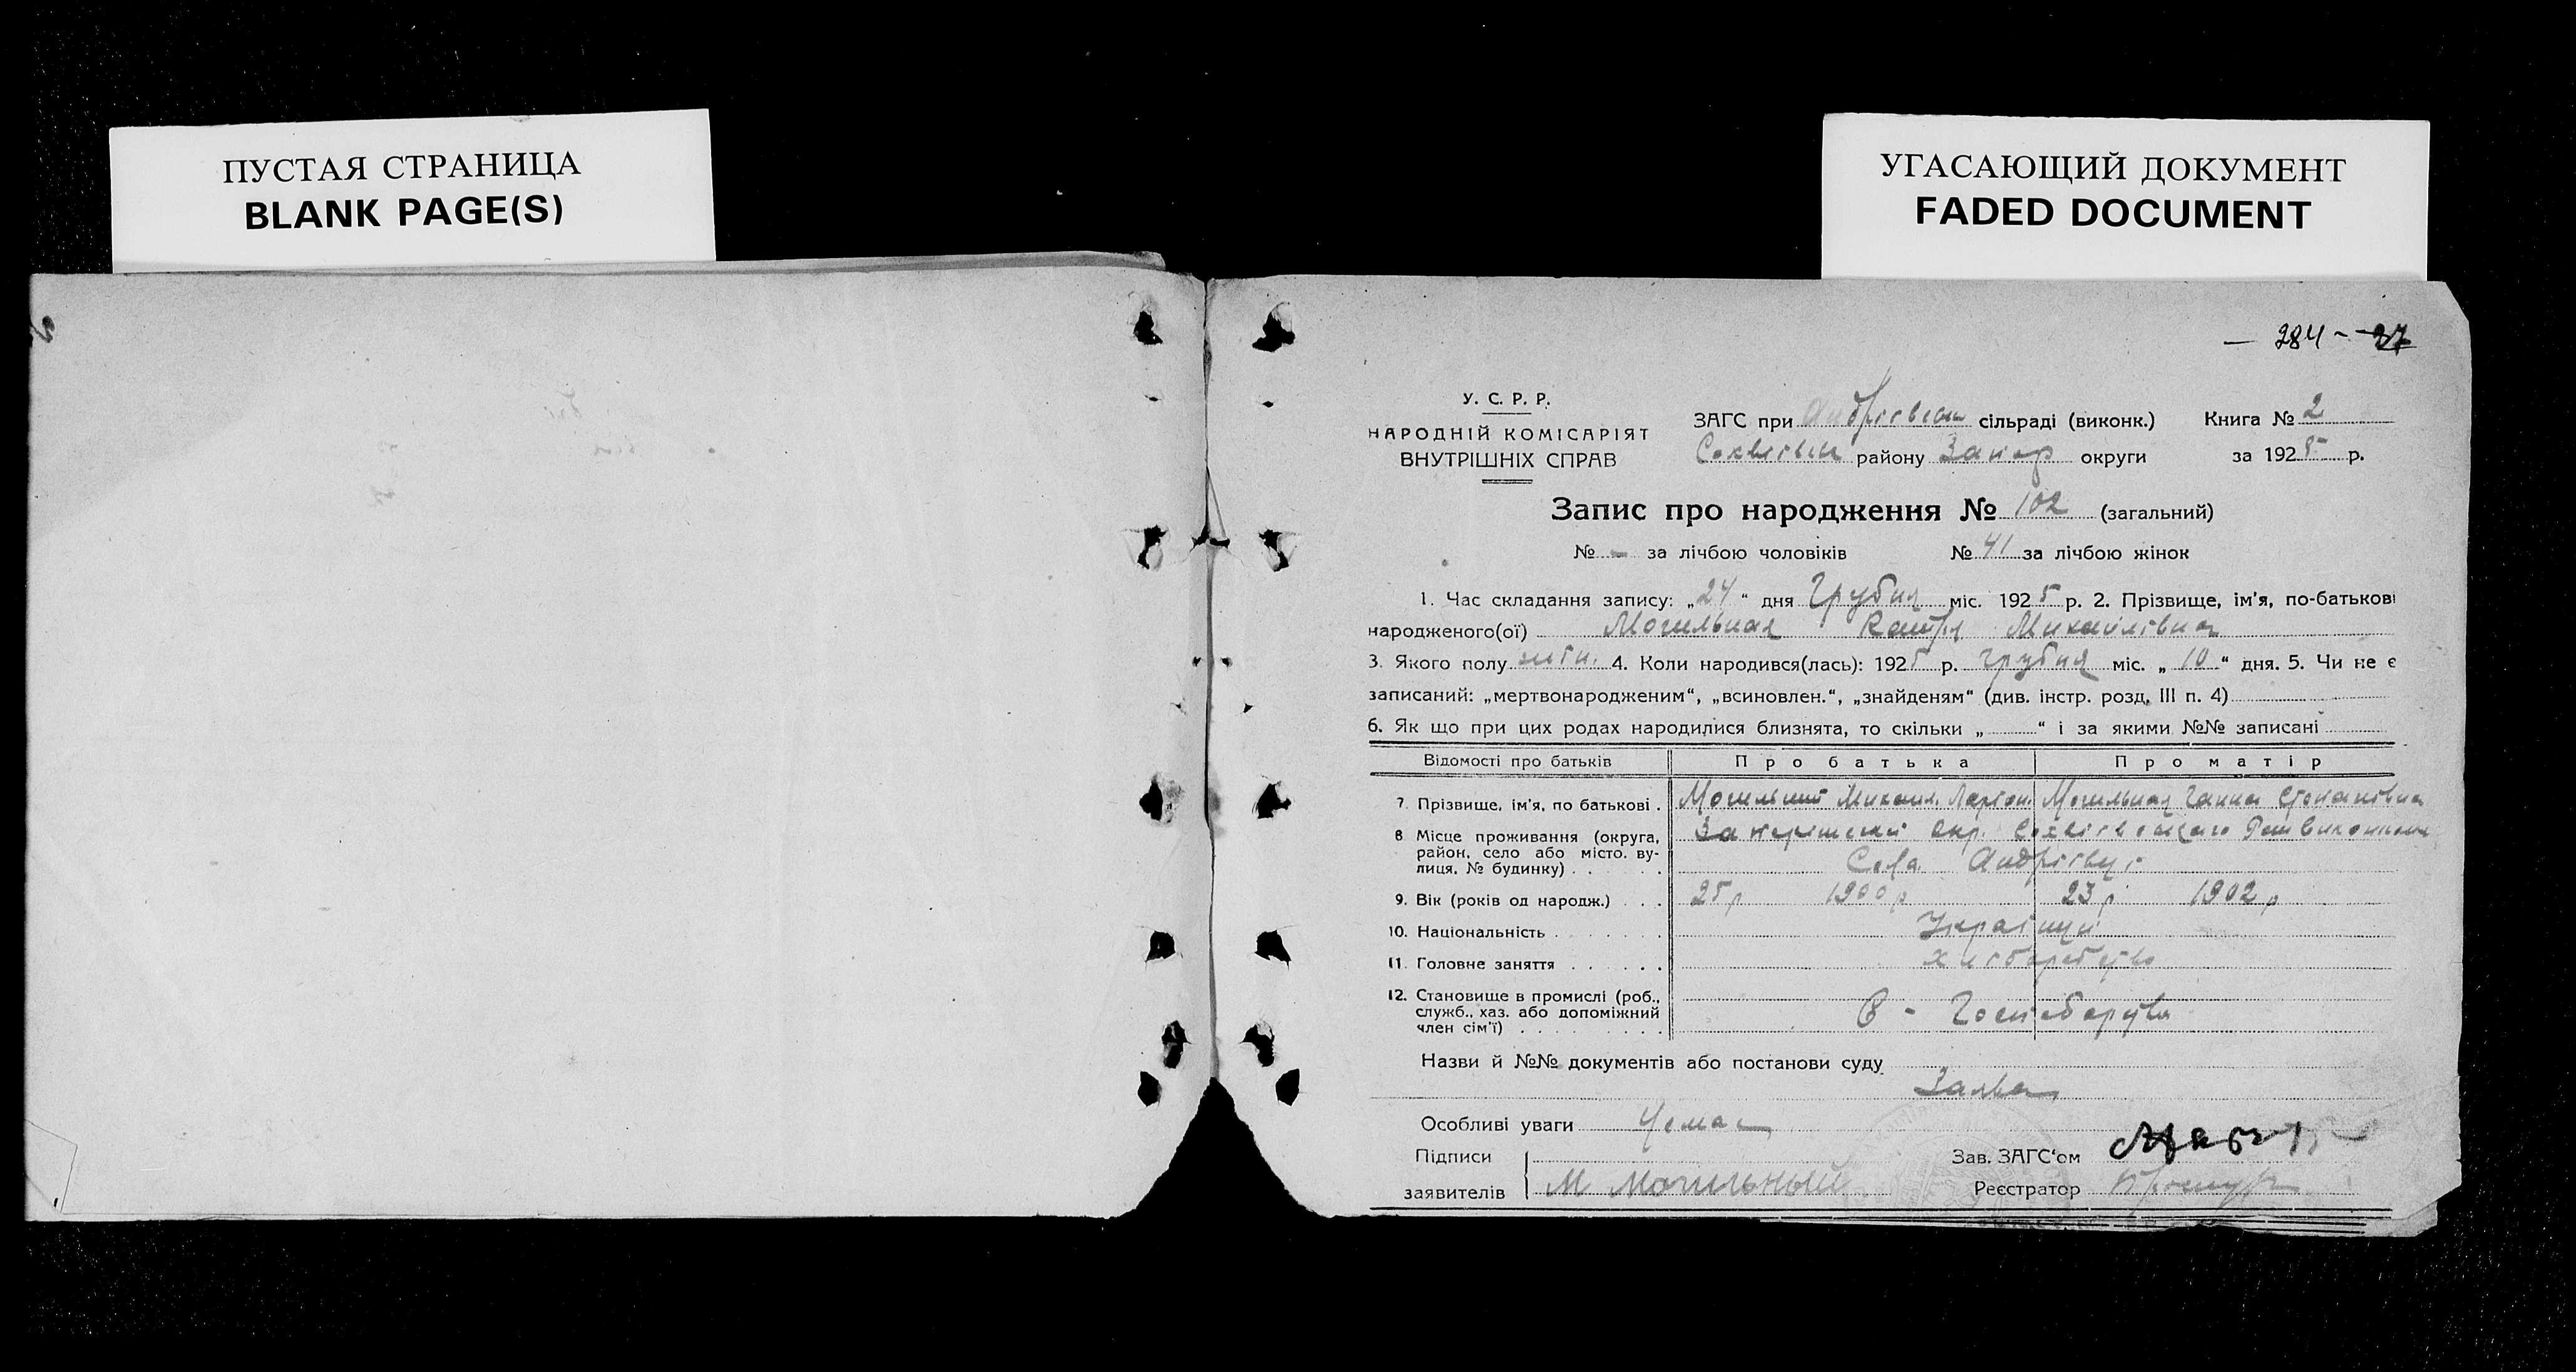 ПУСТАЯ СТРАНИЦА
BLANK PAGE(S)
УГАСАЮЩИЙ ДОКУМЕНТ
FADED DOCUMENT
— 284 - 27
У. С. Р. Р.
НАРОДНІЙ КОМІСАРІЯТ
ВНУТРІШНІХ СПРАВ
ЗАГС при Андрієвськ сільраді (виконк.) Книга № 2
району Запор округи за 1925 р.
Запис про народження № 102 (загальний)
№ - за лічбою чоловіків № 41 за лічбою жінок
1. Час складання запису: „24“ дня Грудня міс. 1925 р. 2. Прізвище, ім'я, по-батькові
народженого(ої) Могильная Катря Михайлівна
3. Якого полу жін. 4. Коли народився(лась): 1925 р. грудня міс. „10“ дня. 5. Чи не є
записаний: „мертвонародженим“, „всиновлен.“, „знайденям“ (див. інстр. розд. III п. 4)
6. Як що при цих родах народилися близнята, то скільки „ “ і за якими №№ записані
Відомості про батьків Про батька Про матір
7. Прізвище, ім'я, по батькові . Могильний Михаил. Ларіон. Могильная Ганна Степанівна
8 Місце проживання (округа, район, село або місто, вулиця, № будинку) . . Окр.
Села Андрієвки
9. Вік (років од народж.) . . . 25 р 1900 р 23 р 1902 р
10. Національність . . . . . . . Українці
11. Головне заняття . . . . . . хліборобство
12. Становище в промислі (роб., служб., хаз. або допоміжний член сім'ї) . . . . . . . . .
Назви й №№ документів або постанови суду
Заява
Особливі уваги Немає
Підписи Зав. ЗАГС'ом
заявителів М Могильный Реєстратор